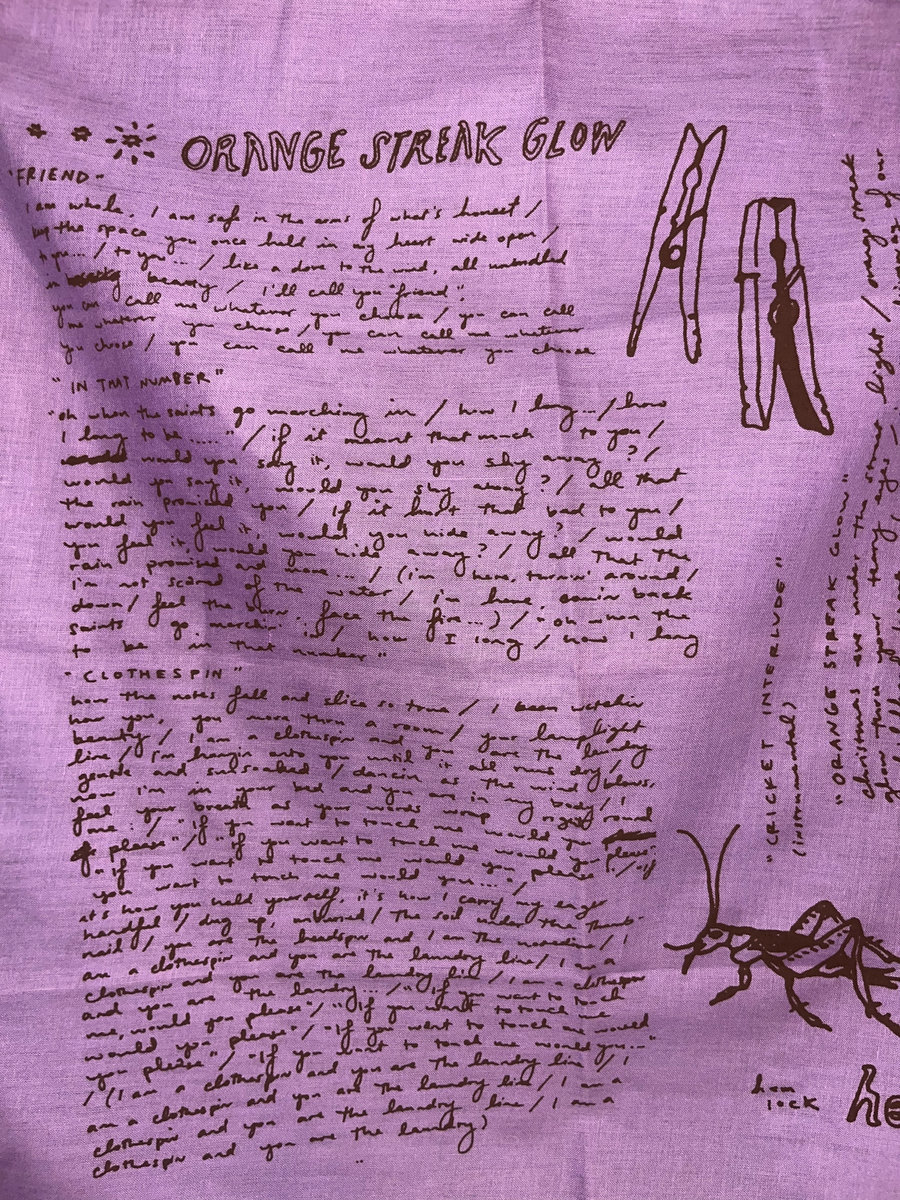 ORANGE STREAK GLOW
"FRIEND"
I am whole, I am safe in the arms of what's honest /
the space you once held in my heart wide open /
hope... / to you... / like a dove to the wind, all unbridled
in beauty / I'll call you "friend".
you can call me whatever you choose / you can call
me whatever you choose / you can call me whatever
you choose / you can call me whatever you choose
"IN THAT NUMBER"
"oh when the saints go marching in / how I long... / how
I long to be ....." / if it meant that much to you /
would you say it, would you shy away? /
would you say it, would you shy away? / all that
the rain promised you / If it hurt that bad to you /
would you feel it, would you hide away? / would
you feel it, would you hide away? / all that the
rain promised and more... / (i'm here, turnin' around /
I'm not scared of the water / i'm here, comin' back
down / feel the burn, face the fire...) / "oh when the
saints go marchin' in / how I long / how I long
to be in that number"
"CLOTHESPIN"
how the notes fall and slice so true / I been watchin
how you, you move thru a room / your lamplight
beauty / I am a clothespin and you are the laundry
line / I'm hangin onto you until it all runs dry /
gentle and sunsoaked / dancin as the wind blows,
now I'm in your bed and you are in my body / I
feel your breath as your words wrap right round
me: / "If you want to touch me would you
please" / "If you want to touch me would you please"
/ "If you want to touch me would you please" / "If
you want to touch me would you..." /
it's how you hold yourself, it's how I carry my
handful / dug up, unwound / the soil under the thumb-
nail / you are the and I am the / I
am a clothespin and you are the laundry line / I am a
clothespin and you are the laundry line / I am a clothespin
and you are the laundry... / "If you want to touch
me, would you please" / "If you want to touch me
would you please" / "If you want to touch me would
you please" / "If you want to touch me would you..."
/ (I am a clothespin and you are the laundry line / I
am a clothespin and you are the laundry line / I am a
clothespin and you are the laundry line / I am a
clothespin and you are the laundry)
"CRICKET INTERLUDE"
(instrumental)
"ORANGE STREAK GLOW"
christmas eve under the stove light / orange streak
glow thru your teary eyes
hem
lock